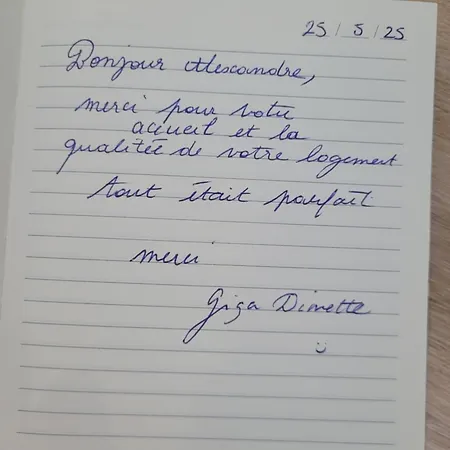 25/5/25
Bonjour Alexandre,
merci pour votre
accueil et la
qualitée de votre logement
tout était parfait
merci
Giga Dinette